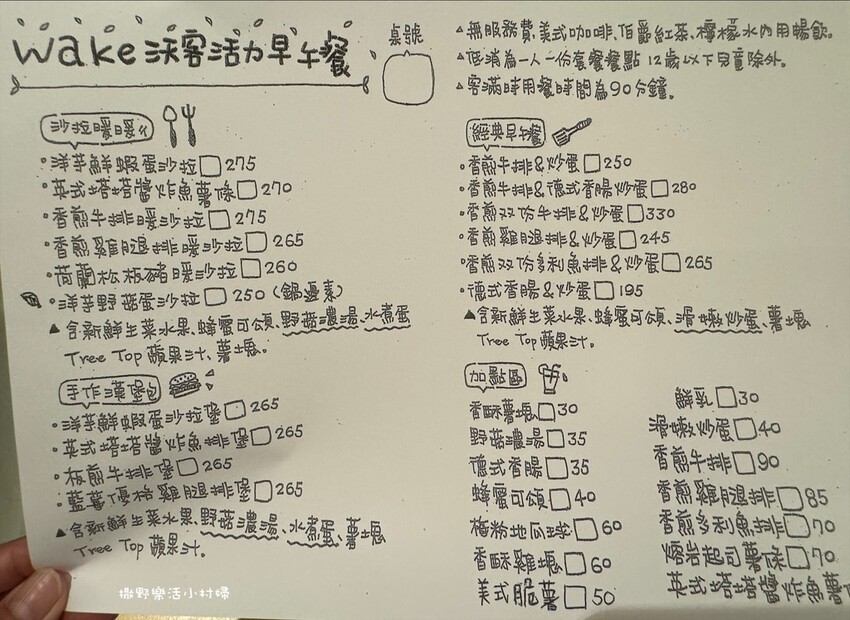 wake 沃客活力早午餐
桌號
△無服務費,美式咖啡、伯爵紅茶、檸檬水內用暢飲。
△低消為一人一份套餐餐點 12歲以下兒童除外。
△客滿時用餐時間為90分鐘。
沙拉暖暖ㄉ
•洋芋鮮蝦蛋沙拉□275
•英式塔塔醬炸魚薯條□270
•香煎牛排暖沙拉□275
•香煎雞腿排暖沙拉□265
•荷蘭松板豬暖沙拉□260
•洋芋野菇蛋沙拉□250(鍋邊素)
▲含新鮮生菜水果、蜂蜜可頌、野菇濃湯、水煮蛋
Tree Top蘋果汁、薯塊。
手作漢堡包
•洋芋鮮蝦蛋沙拉堡□265
•英式塔塔醬炸魚排堡□265
•板煎牛排堡□265
•藍莓優格雞腿排堡□265
▲含新鮮生菜水果、野菇濃湯、水煮蛋、薯塊
Tree Top蘋果汁。
經典早午餐
•香煎牛排&炒蛋□250
•香煎牛排&德式香腸炒蛋□280
•香煎双份牛排&炒蛋□330
•香煎雞腿排&炒蛋□245
•香煎双份多利魚排&炒蛋□265
•德式香腸&炒蛋□195
▲含新鮮生菜水果、蜂蜜可頌、滑嫩炒蛋、薯塊
Tree Top蘋果汁。
加點區
香酥薯塊□30
野菇濃湯□35
德式香腸□35
蜂蜜可頌□40
梅粉地瓜球□60
香酥雞塊□60
美式脆薯□50
鮮乳□30
滑嫩炒蛋□40
香煎牛排□90
香煎雞腿排□85
香煎多利魚排□70
熔岩起司薯條□70
英式塔塔醬炸魚薯
撒野樂活小村婦